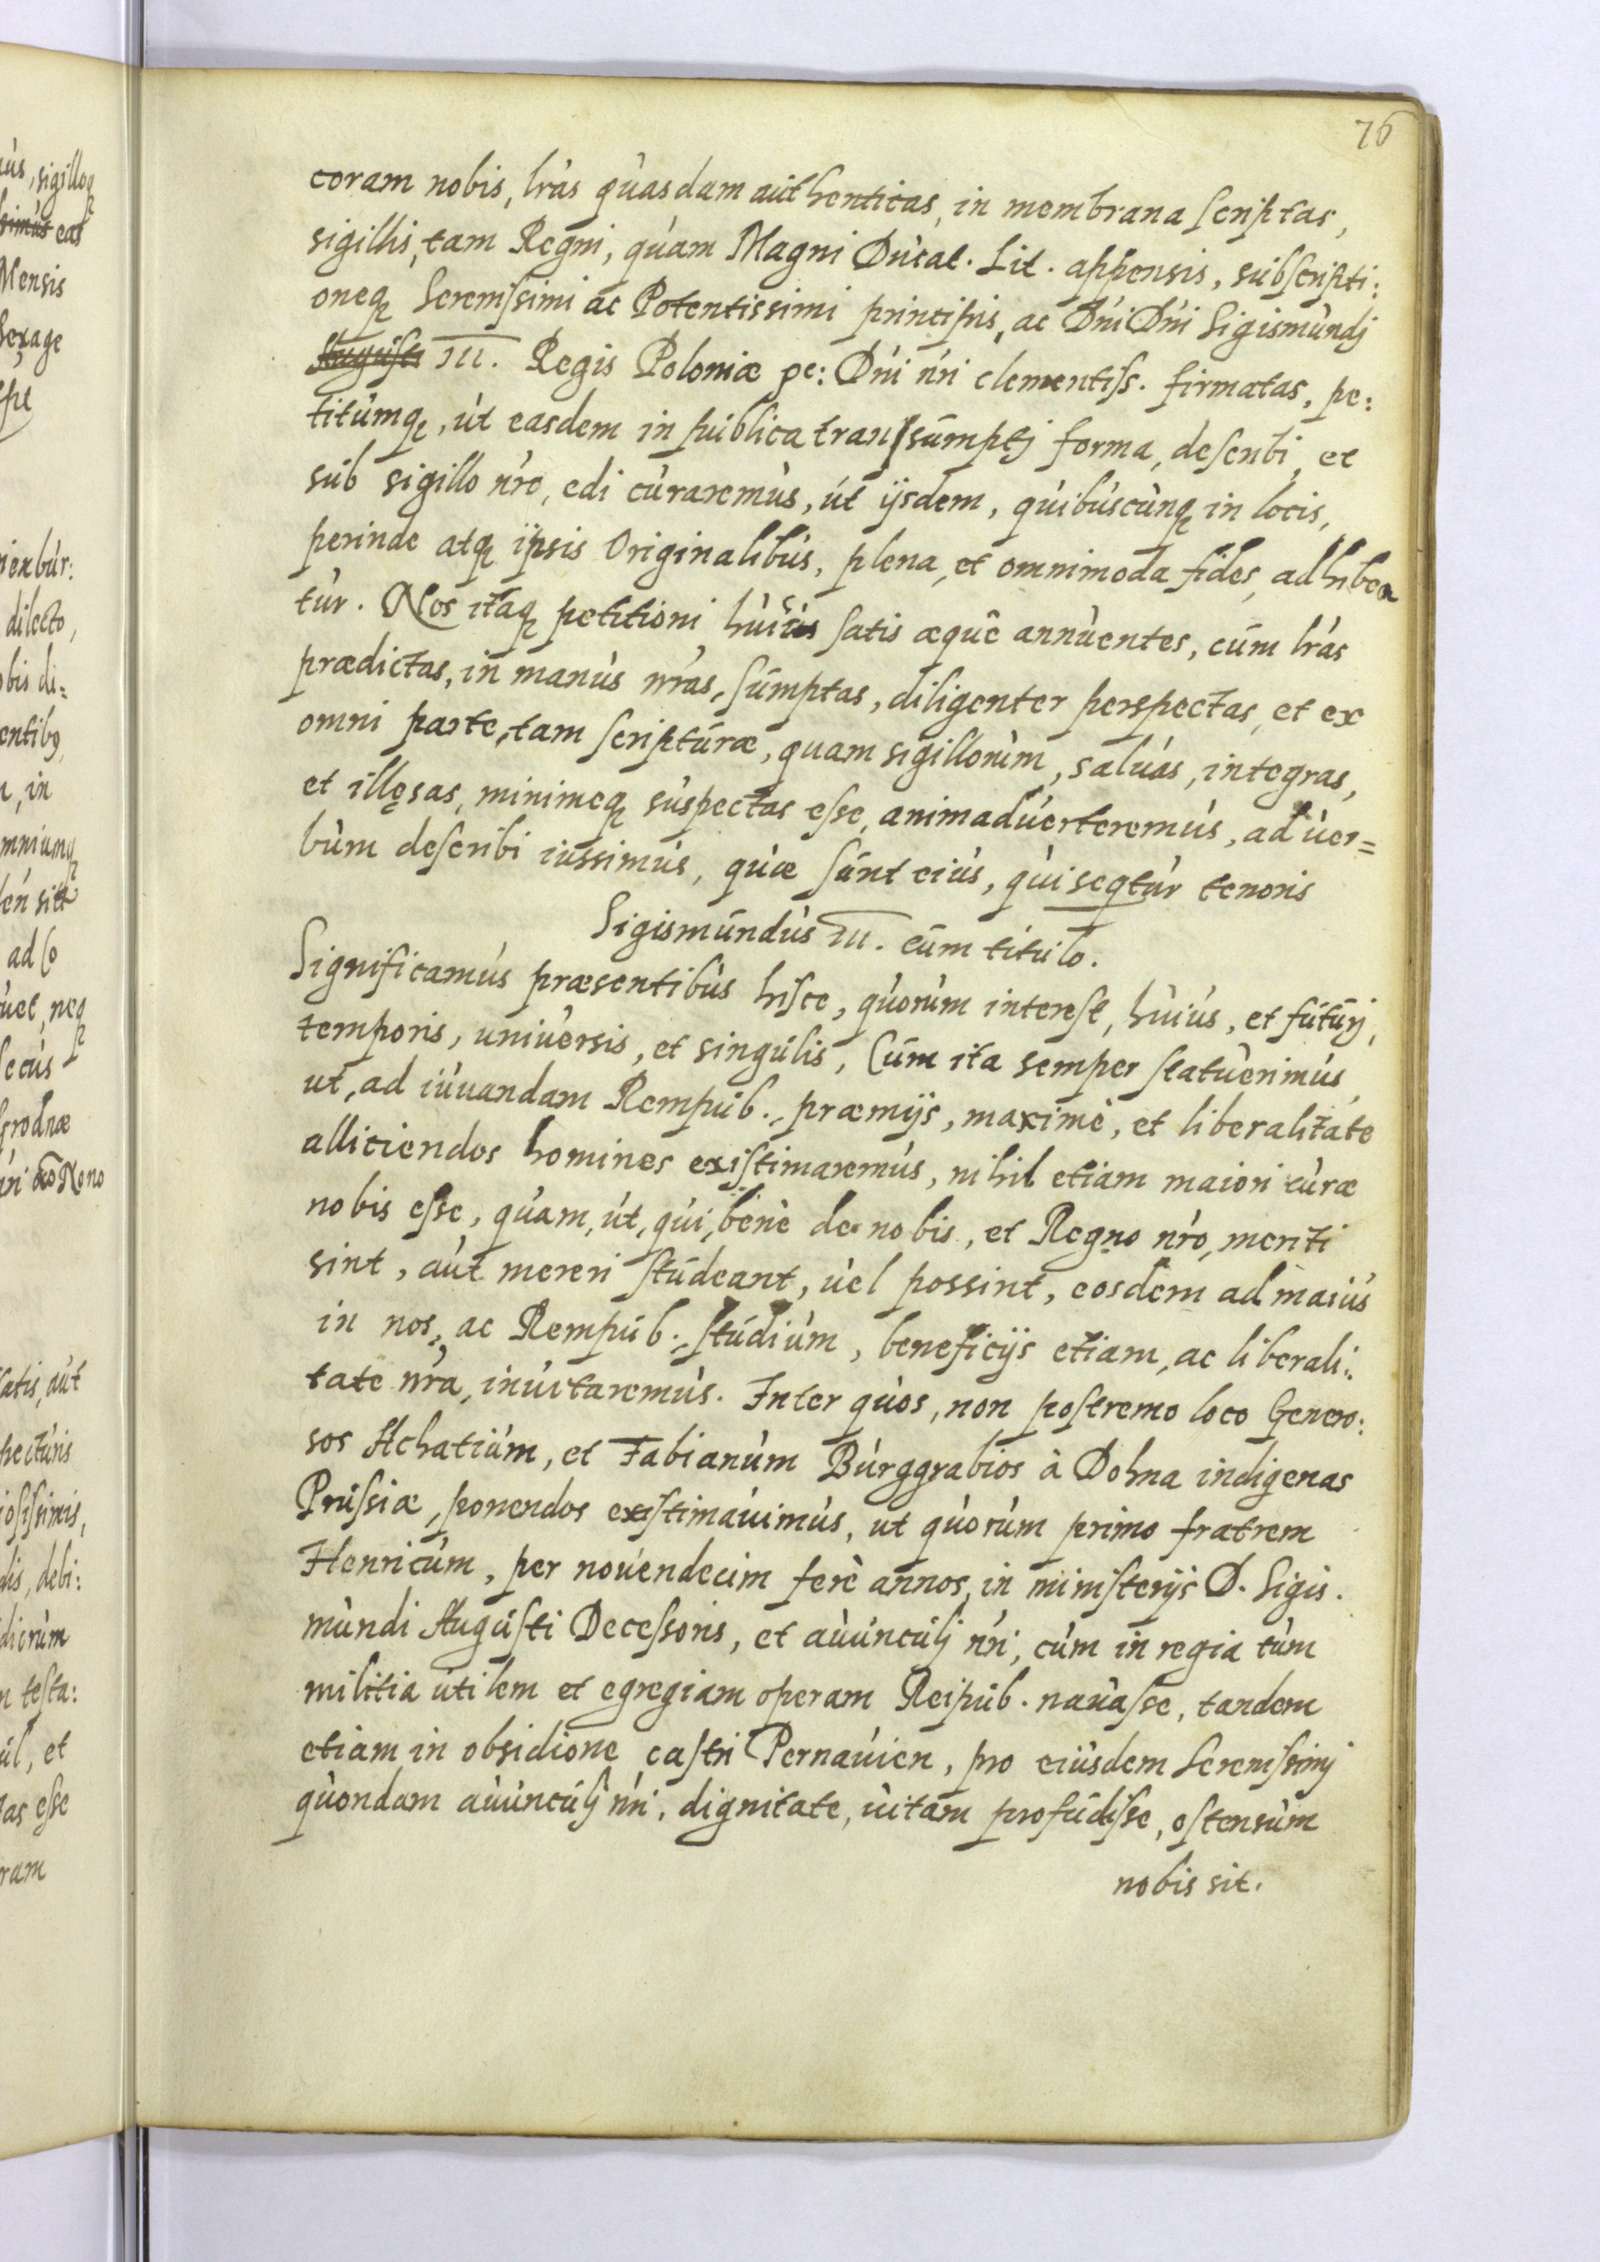 76
coram nobis, lras quasdam authenticas, in membrana scriptas,
sigillis, tam Regni, quam Magni Ducat. Lit. appensis, subscripti:
oneq, Serenissimi ac Potentissimi principis, ac Dni Dni Sigismundj
Augusti III. Regis Poloniæ pc: Dni nri clementiss. firmatas, pe:
titumq, ut easdem in publica transsumptj forma, describi, et
sub sigillo nro, edi curaremus, ut ijsdem, quibuscunq in locis,
perinde atq ipsis Originalibus, plena, et omnimoda fides, adhibea
tur. Nos itaq petitioni huic satis æquê annuentes, cum lras
prædictas, in manus nras, sumptas, diligenter perspectas, et ex
omni parte, tam scripturæ, quam sigillorum, saluas, integras,
et illęsas, minimeq suspectas esse, animaduerteremus, ad uer=
bum describi iussimus, quæ sunt eius, qui seqtur tenoris
Sigismundus III. cum titulo.
Significamus præsentibus hisce, quorum interest, huius, et futurj,
temporis, uniuersis, et singulis, Cum ita semper statuerimus,
ut, ad iuuandam Rempub., præmijs, maximè, et liberalitate
alliciendos homines existimaremus, nihil etiam maiori curæ
nobis esse, quam, ut, qui, benè de nobis, et Regno nro, meriti
sint, aut mereri studeant, uel possint, eosdem ad maius
in nos, ac Rempub., studium, beneficijs etiam, ac liberali:
tate nra, inuitaremus. Inter quos, non postremo loco Genero:
sos Achatium, et Fabianum Burggrabios à Dohna indigenas
Prussiæ, ponendos existimauimus, ut quorum primo fratrem
Henricum, per nouendecim ferè annos, in ministerijs D. Sigis.
mundi Augusti Decessoris, et auunculj nri, cum in regia tum
militia utilem et egregiam operam Reipub. nauasse, tandem
etiam in obsidione castri Pernauien, pro eiusdem Serenissimj
quondam auunculj nri, dignitate, uitam profudisse, ostensum
nobis sit.